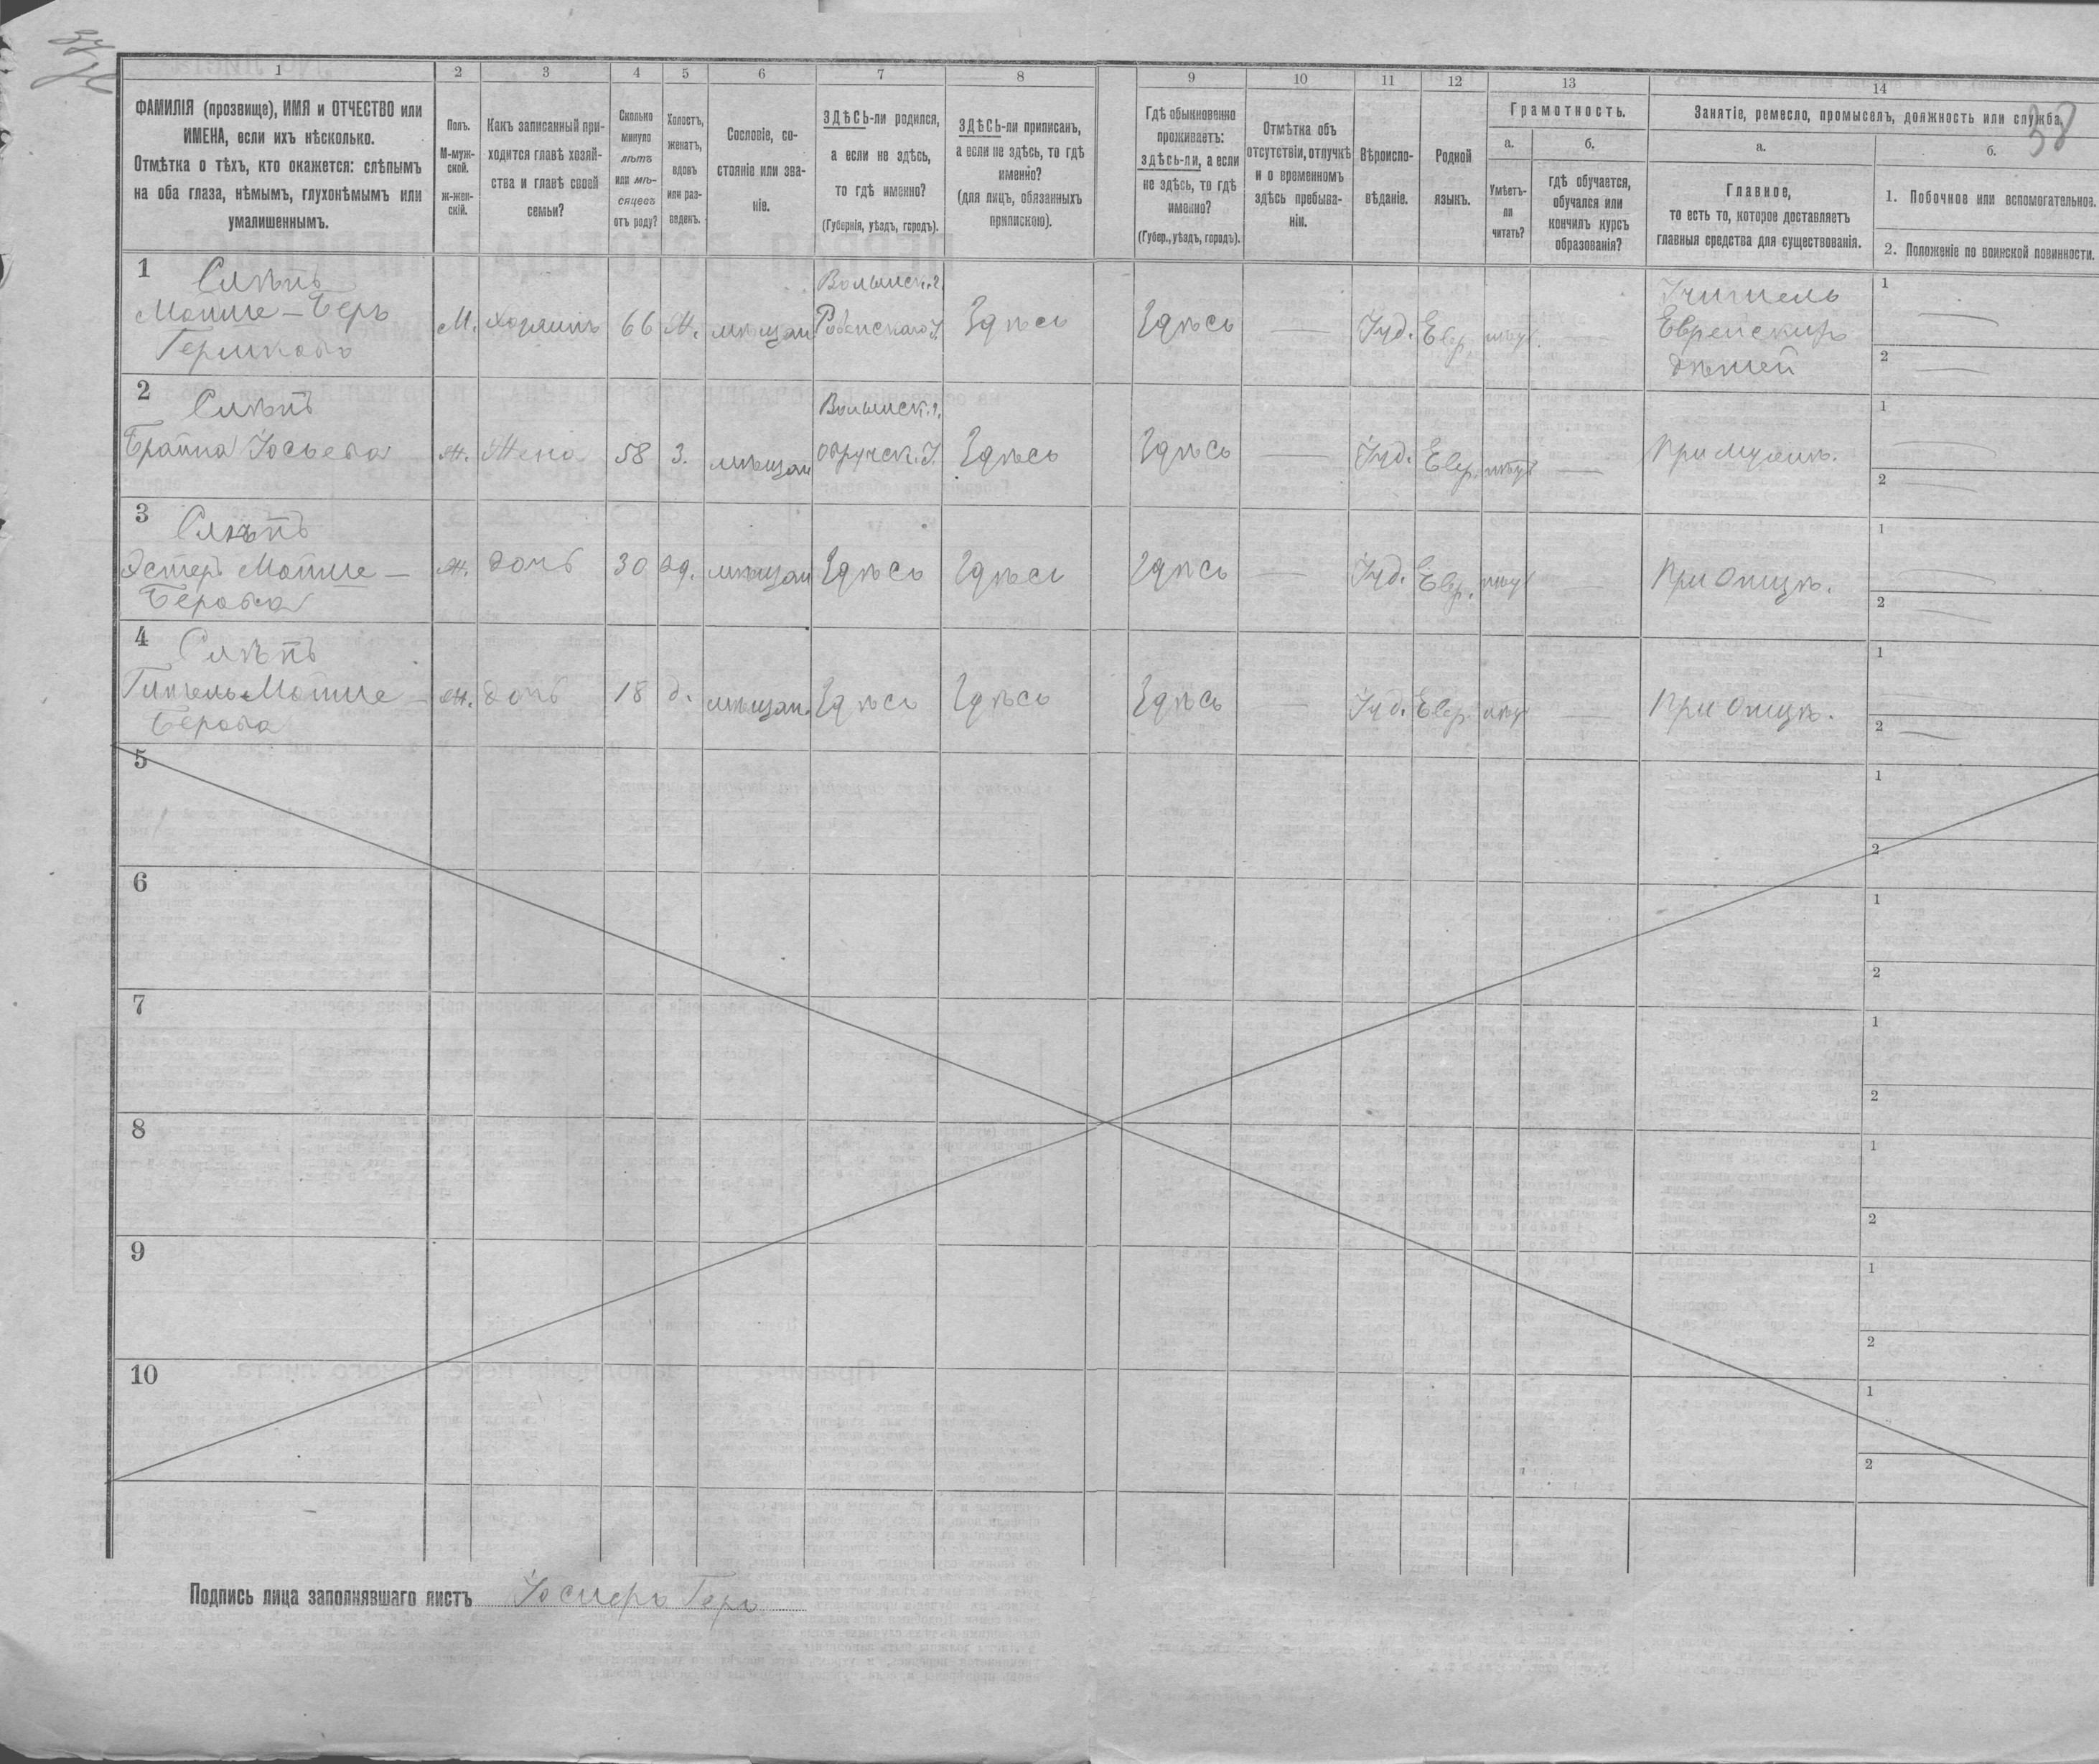 37 58
1 2 3 4 5 6 7 8 9 10 11 12 13 14
ФАМИЛІЯ (прозвище), ИМЯ и ОТЧЕСТВО или
ИМЕНА, если ихъ нѣсколько.
Отмѣтка о тѣхъ, кто окажется: слѣпымъ
на оба глаза, нѣмымъ, глухонѣмымъ или
умалишеннымъ.
Полъ.
М-муж-
ской.
Ж-жен-
скій.
Какъ записанный при-
ходится главѣ хозяй-
ства и главѣ своей
семьи?
Сколько
минуло
лѣтъ
или мѣ-
сяцевъ
отъ роду?
Холостъ,
женатъ,
вдовъ
или раз-
веденъ.
Сословіе, со-
стояніе или зва-
ніе.
ЗДѢСЬ-ли родился,
а если не здѣсь,
то гдѣ именно?
(Губернія, уѣздъ, городъ).
ЗДѢСЬ-ли приписанъ,
а если не здѣсь, то гдѣ
именно?
(для лицъ, обязанныхъ
припискою).
Гдѣ обыкновенно
проживаетъ:
здѣсь-ли, а если
не здѣсь, то гдѣ
именно?
(Губер., уѣздъ, городъ).
Отмѣтка объ
отсутствіи, отлучкѣ
и о временномъ
здѣсь пребыва-
ніи.
Вѣроиспо-
вѣданіе.
Родной
языкъ.
Грамотность.
а.
Умѣетъ-
ли
читать?
б.
гдѣ обучается,
обучался или
кончилъ курсъ
образованія?
Занятіе, ремесло, промыселъ, должность или служба.
а.
Главное,
то есть то, которое доставляетъ
главныя средства для существованія.
б.
1. Побочное или вспомогательное.
2. Положеніе по воинской повинности.
1 Слѣпъ
Мошше-Беръ
Гершковъ
М. хозяинъ 66 Ж. мѣщан
Волынск. г.
Ровенскаго У.
Здѣсь Здѣсь — Iуд. Евр.
Учитель
Еврейскихъ
дѣтей
1 —
2 —
2 Слѣпъ
Брайна Iосьева
Ж. Жена 58 З. мѣщан
Волынск. г.
Овручск. У.
Здѣсь Здѣсь — Iуд. Евр. —
При мужѣ.
1 —
2 —
3 Слѣпъ
Эстеръ Мошше-
Берова
Ж. дочь 30 мѣщан Здѣсь Здѣсь Здѣсь — Iуд. Евр. —
При Отцѣ.
1 —
2 —
4 Слѣпъ
Мошше-
Берова
Ж. дочь 18 д. мѣщан. Здѣсь Здѣсь Здѣсь — Iуд. Евр. —
При Отцѣ.
1 —
2 —
5 1
2
6 1
2
7 1
2
8 1
2
9 1
2
10 1
2
Подпись лица заполнявшаго листъ